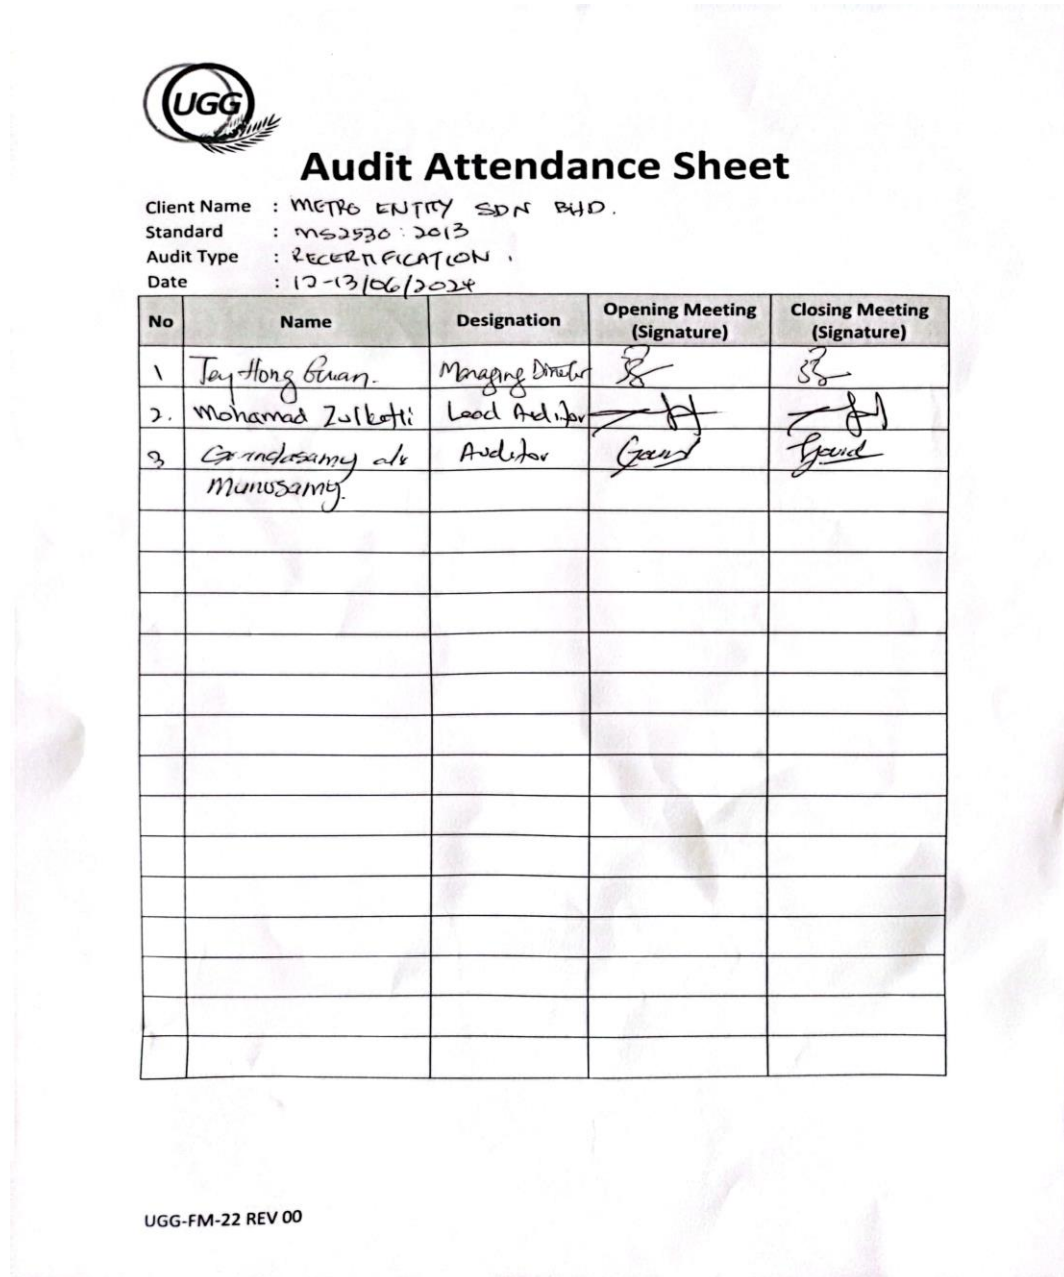 UGG
Audit Attendance Sheet
Client Name : METRO ENTITY SDN BHD.
Standard : MS2530:2013
Audit Type : RECERTIFICATION.
Date : 12-13/06/2024
No Name Designation Opening Meeting (Signature) Closing Meeting (Signature)
1 Tey Hong Guan. Managing Director
2. Mohamad Zulkefli Lead Auditor
3 a/k Auditor
Munusamy.
UGG-FM-22 REV 00